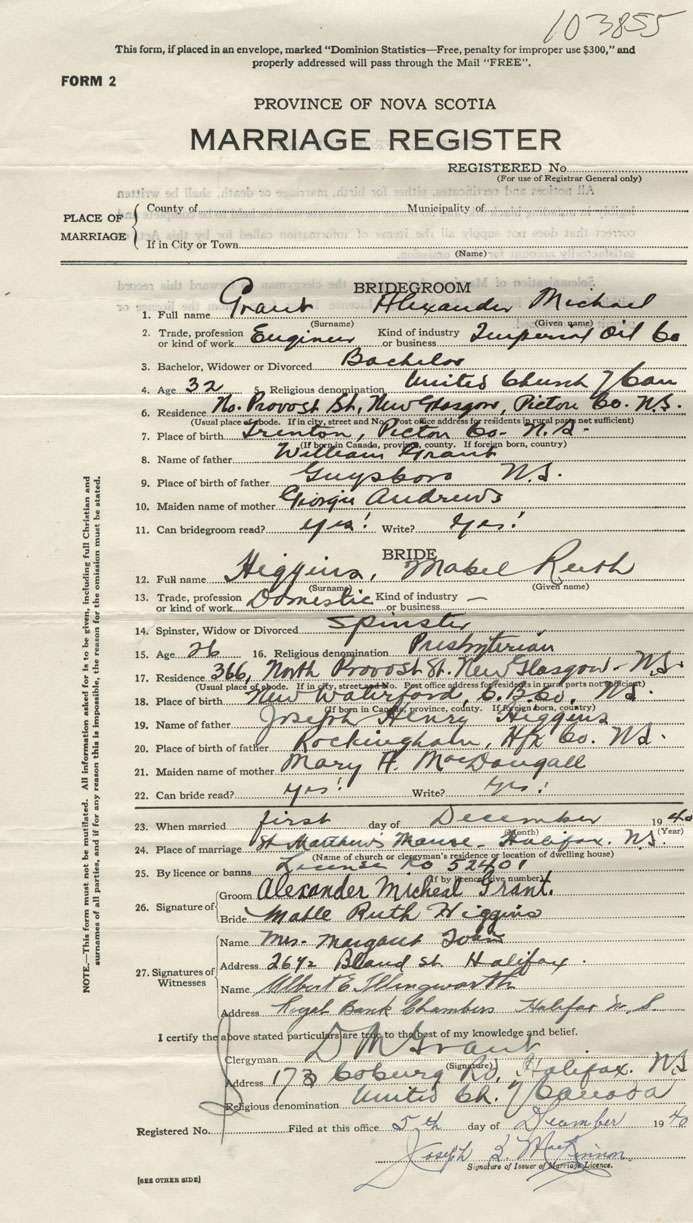 103855
This form, if placed in an envelope, marked "Dominion Statistics—Free, penalty for improper use $300," and
properly addressed will pass through the Mail "FREE".
FORM 2
PROVINCE OF NOVA SCOTIA
MARRIAGE REGISTER
REGISTERED No.
(For use of Registrar General only)
PLACE OF MARRIAGE
County of Municipality of
If in City or Town
(Name)
BRIDEGROOM
1. Full name Grant Alexander Michael
(Surname) (Given name)
2. Trade, profession or kind of work Engineer Kind of industry or business Imperial Oil Co
3. Bachelor, Widower or Divorced Bachelor
4. Age 32 5. Religious denomination United Church of Can
6. Residence No. Provost St, New Glasgow, Pictou Co. N.S.
(Usual place of abode. If in city, street and No. Post office address for residents in rural parts not sufficient)
7. Place of birth Trenton, Pictou Co. N.S.
(If born in Canada, province, county. If foreign born, country)
8. Name of father William Grant
9. Place of birth of father Guysboro N.S.
10. Maiden name of mother Georgie Andrews
11. Can bridegroom read? yes! Write? yes!
BRIDE
12. Full name Higgins, Mabel Ruth
(Surname) (Given name)
13. Trade, profession or kind of work Domestic Kind of industry or business —
14. Spinster, Widow or Divorced Spinster
15. Age 26 16. Religious denomination Presbyterian
17. Residence 366, North Provost St. New Glasgow - N.S.
(Usual place of abode. If in city, street and No. Post office address for residents in rural parts not sufficient)
18. Place of birth New Waterford, C.B. Co, N.S.
(If born in Canada, province, county. If foreign born, country)
19. Name of father Joseph Henry Higgins
20. Place of birth of father Rockingham, Hfx Co. N.S.
21. Maiden name of mother Mary H. MacDougall
22. Can bride read? yes! Write? yes!
23. When married first day of December 1940
(Month) (Year)
24. Place of marriage St Matthew's Manse - Halifax. N.S.
(Name of church or clergyman's residence or location of dwelling house)
25. By licence or banns License No 52401
(If by licence give number)
26. Signature of Groom Alexander Micheal Grant.
Bride Mable Ruth Higgins
27. Signatures of Witnesses
Name Mrs. Margaret
Address 26½ Bland St Halifax.
Name Albert E. Illingworth
Address Royal Bank Chambers Halifax N.S
I certify the above stated particulars are true to the best of my knowledge and belief.
Clergyman D M Grant
(Signature)
Address 173 Coburg Rd, Halifax. N.S
Religious denomination United Ch. of Canada
Registered No. Filed at this office 5th day of December 1940
Joseph MacKinnon
Signature of Issuer of Marriage Licence.
[SEE OTHER SIDE]
NOTE.—This form must not be mutilated. All information asked for is to be given, including full Christian and
surnames of all parties, and if for any reason this is impossible, the reason for the omission must be stated.